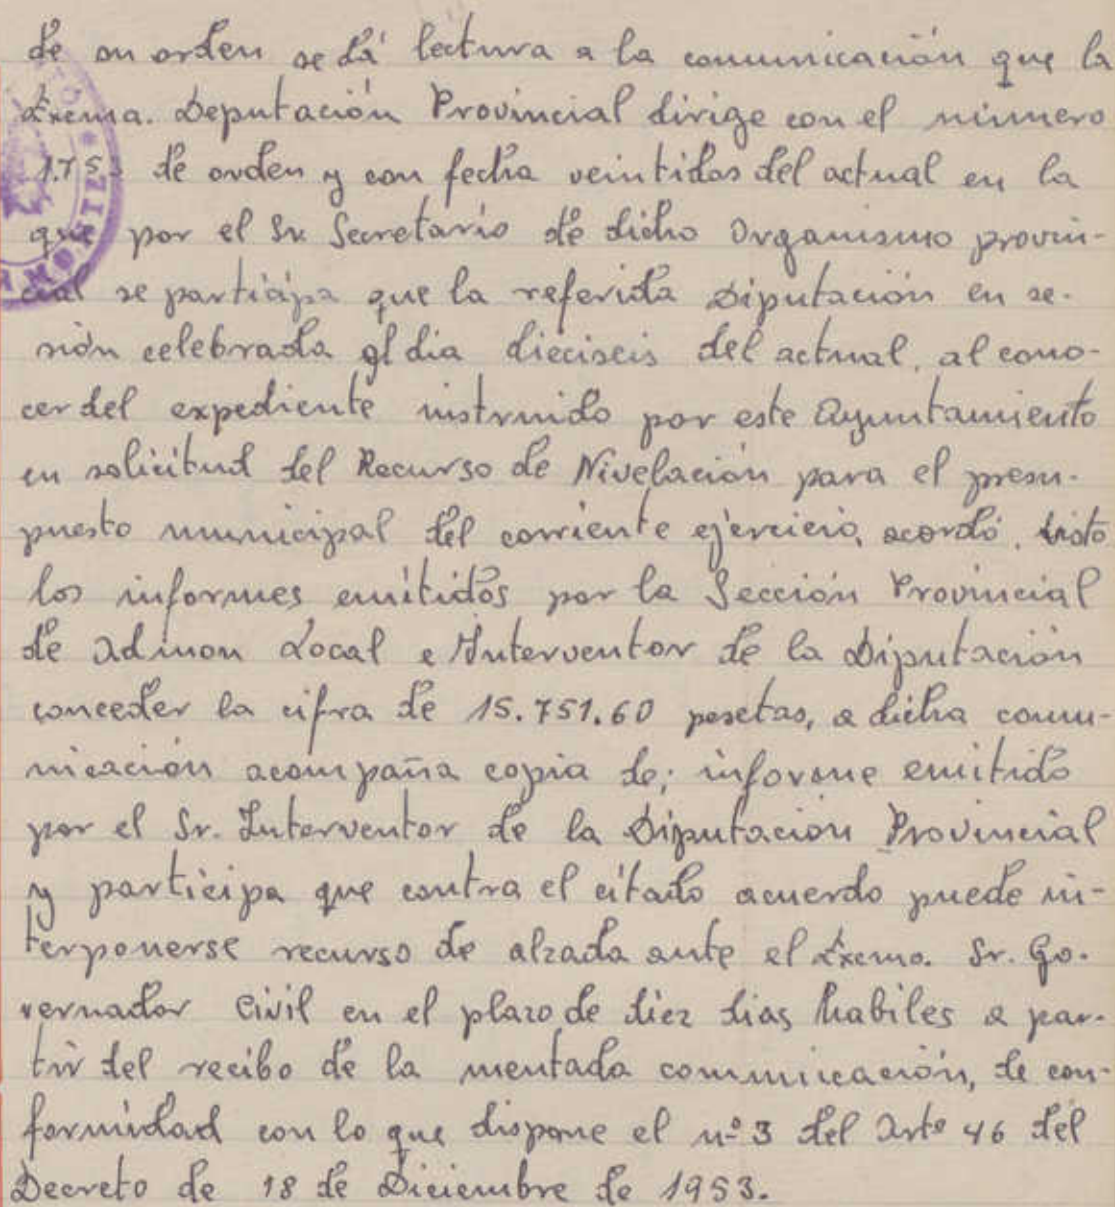 de su orden se dá lectura a la comunicación que la
Excma. Deputación Provincial dirige con el número
1.75 de orden y con fecha veintidos del actual en la
que por el Sr. Secretario de dicho Organismo provin-
cial se participa que la referida Diputación en se-
sión celebrada el dia dieciseis del actual, al cono-
cer del expediente instruido por este Ayuntamiento
en solicitud del Recurso de Nivelación para el presu-
puesto municipal del corriente ejercicio, acordó, visto
los informes emitidos por la Sección Provincial
de Admon Local e Interventor de la Diputación
conceder la cifra de 15.751.60 pesetas, a dicha comu-
nicación acompaña copia de; informe emitido
por el Sr. Interventor de la Diputación Provincial
y participa que contra el citado acuerdo puede in-
terponerse recurso de alzada ante el Excmo. Sr. Go-
vernador Civil en el plazo de diez dias habiles a par-
tir del recibo de la mentada comunicación, de con-
formidad con lo que dispone el nº 3 del Artº 46 del
Decreto de 18 de Diciembre de 1953.